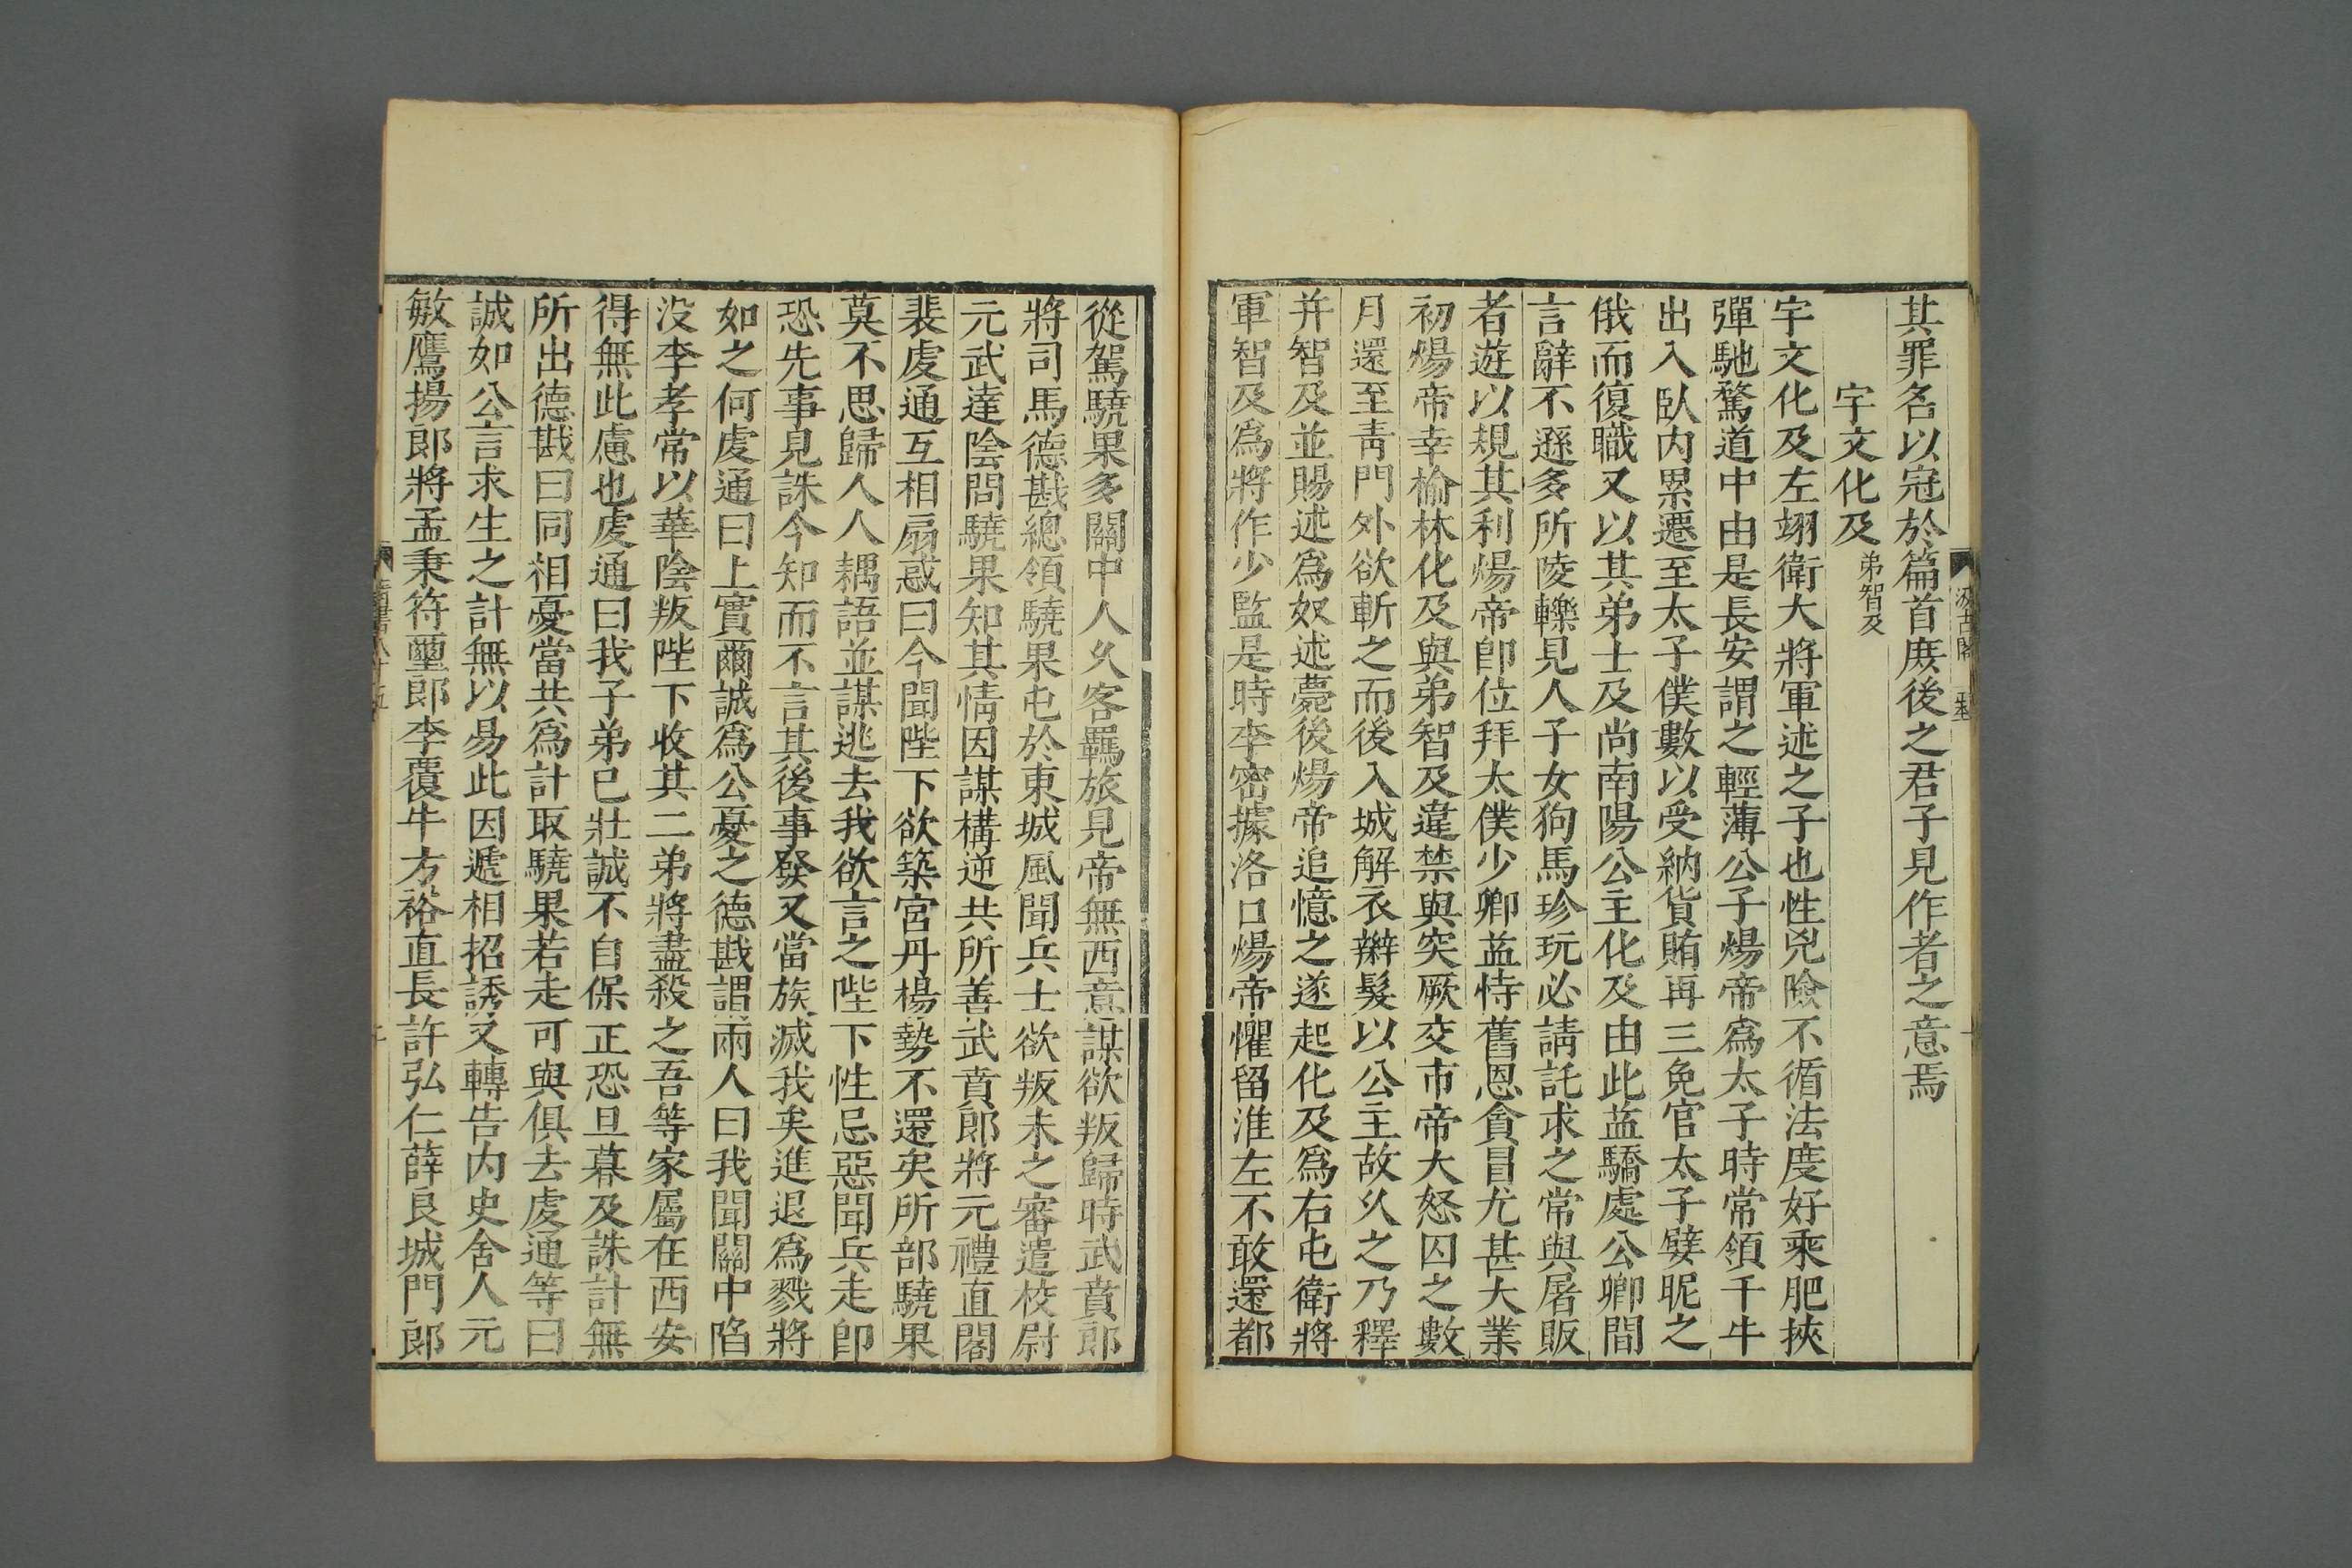 其罪名以冠於篇首庶後之君子見作者之意焉
宇文化及弟智及
宇文化及左翊衛大將軍述之子也性兇險不循法度好乘肥挾
彈馳騖道中由是長安謂之輕薄公子煬帝爲太子時常領千牛
出入臥內累遷至太子僕數以受納貨賄再三免官太子嬖昵之
俄而復職又以其弟士及尚南陽公主化及由此益驕處公卿間
言辭不遜多所陵轢見人子女狗馬珍玩必請託求之常與屠販
者遊以規其利煬帝卽位拜太僕少卿益恃舊恩貪冒尤甚大業
初煬帝幸榆林化及與弟智及違禁與突厥交市帝大怒囚之數
月還至青門外欲斬之而後入城解衣辮髮以公主故久之乃釋
并智及並賜述爲奴述薨後煬帝追憶之遂起化及爲右屯衛將
軍智及爲將作少監是時李密據洛口煬帝懼留淮左不敢還都
從駕驍果多關中人久客羈旅見帝無西意謀欲叛歸時武賁郎
將司馬德戡總領驍果屯於東城風聞兵士欲叛未之審遣校尉
元武達陰問驍果知其情因謀構逆共所善武賁郎將元禮直閣
裴虔通互相扇惑曰今聞陛下欲築宮丹楊勢不還矣所部驍果
莫不思歸人人耦語並謀逃去我欲言之陛下性忌惡聞兵走卽
恐先事見誅今知而不言其後事發又當族滅我矣進退爲戮將
如之何虔通曰上實爾誠爲公憂之德戡謂兩人曰我聞關中陷
没李孝常以華陰叛陛下收其二弟將盡殺之吾等家屬在西安
得無此慮也虔通曰我子弟已壯誠不自保正恐旦暮及誅計無
所出德戡曰同相憂當共爲計取驍果若走可與俱去虔通等曰
誠如公言求生之計無以易此因遞相招誘又轉告內史舍人元
敏鷹揚郎將孟秉符璽郎李覆牛方裕直長許弘仁薛良城門郎
汲古閣
隋書八十五